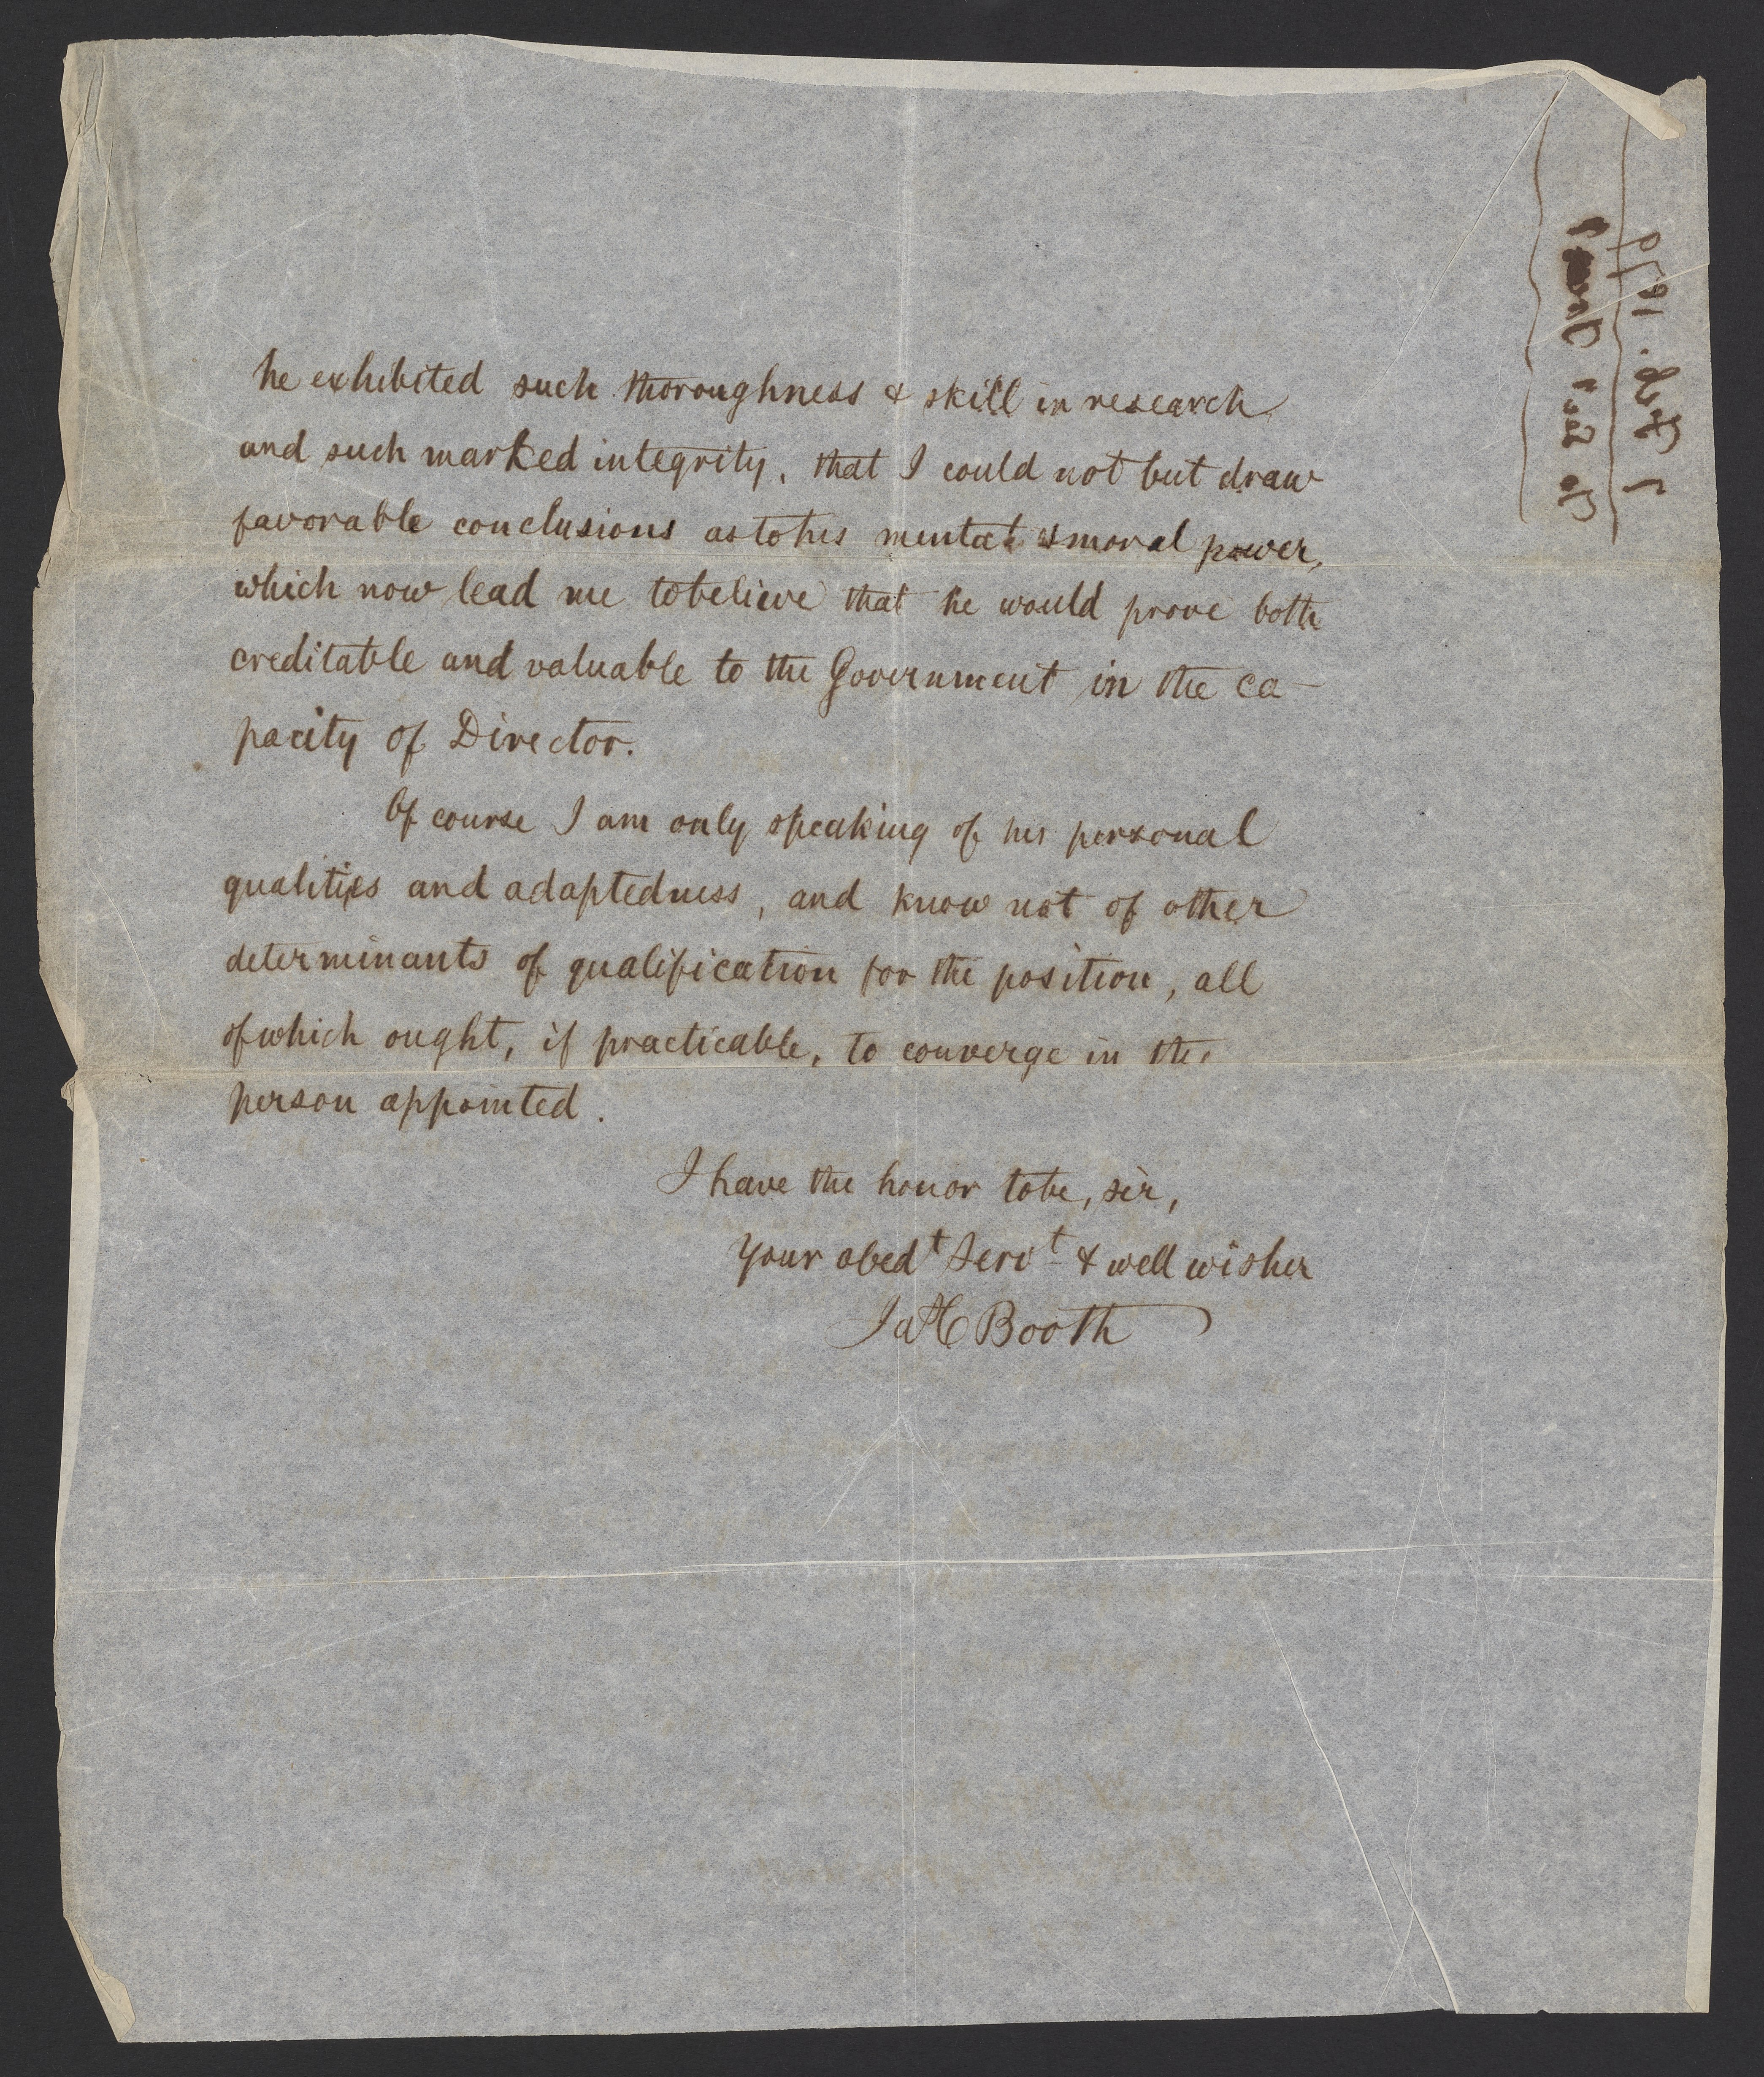 he exhibited such thoroughness & skill in research
and such marked integrity, that I could not but draw
favorable conclusions as to his mental & moral power,
which now lead me to believe that he would prove both
creditable and valuable to the Government in the ca-
pacity of Director.
Of course I am only speaking of his personal
qualities and adaptedness, and know not of other
determinants of qualification for the position, all
of which ought, if practicable, to converge in the
person appointed.
I have the honor to be, sir,
Your obedt Servt & well wisher
Jas C Booth